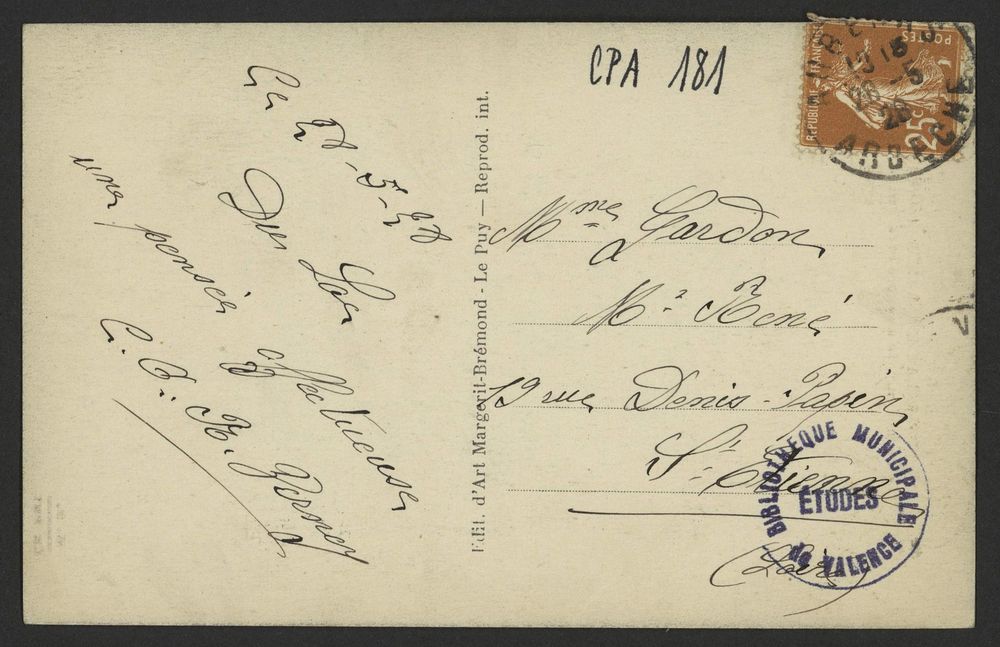 Le 27-5-28
Du Lac
une pensée affectueuse
CPA 181
Mme Gardon
Mr René
19 rue Denis-Papin
St Étienne
(Loire)
Edit. d'Art Margerit-Brémond - Le Puy — Reprod. int.
RÉPUBLIQUE FRANÇAISE
POSTES
25c
26 -5
28
ARDECHE
BIBLIOTHÈQUE MUNICIPALE
ÉTUDES
de VALENCE